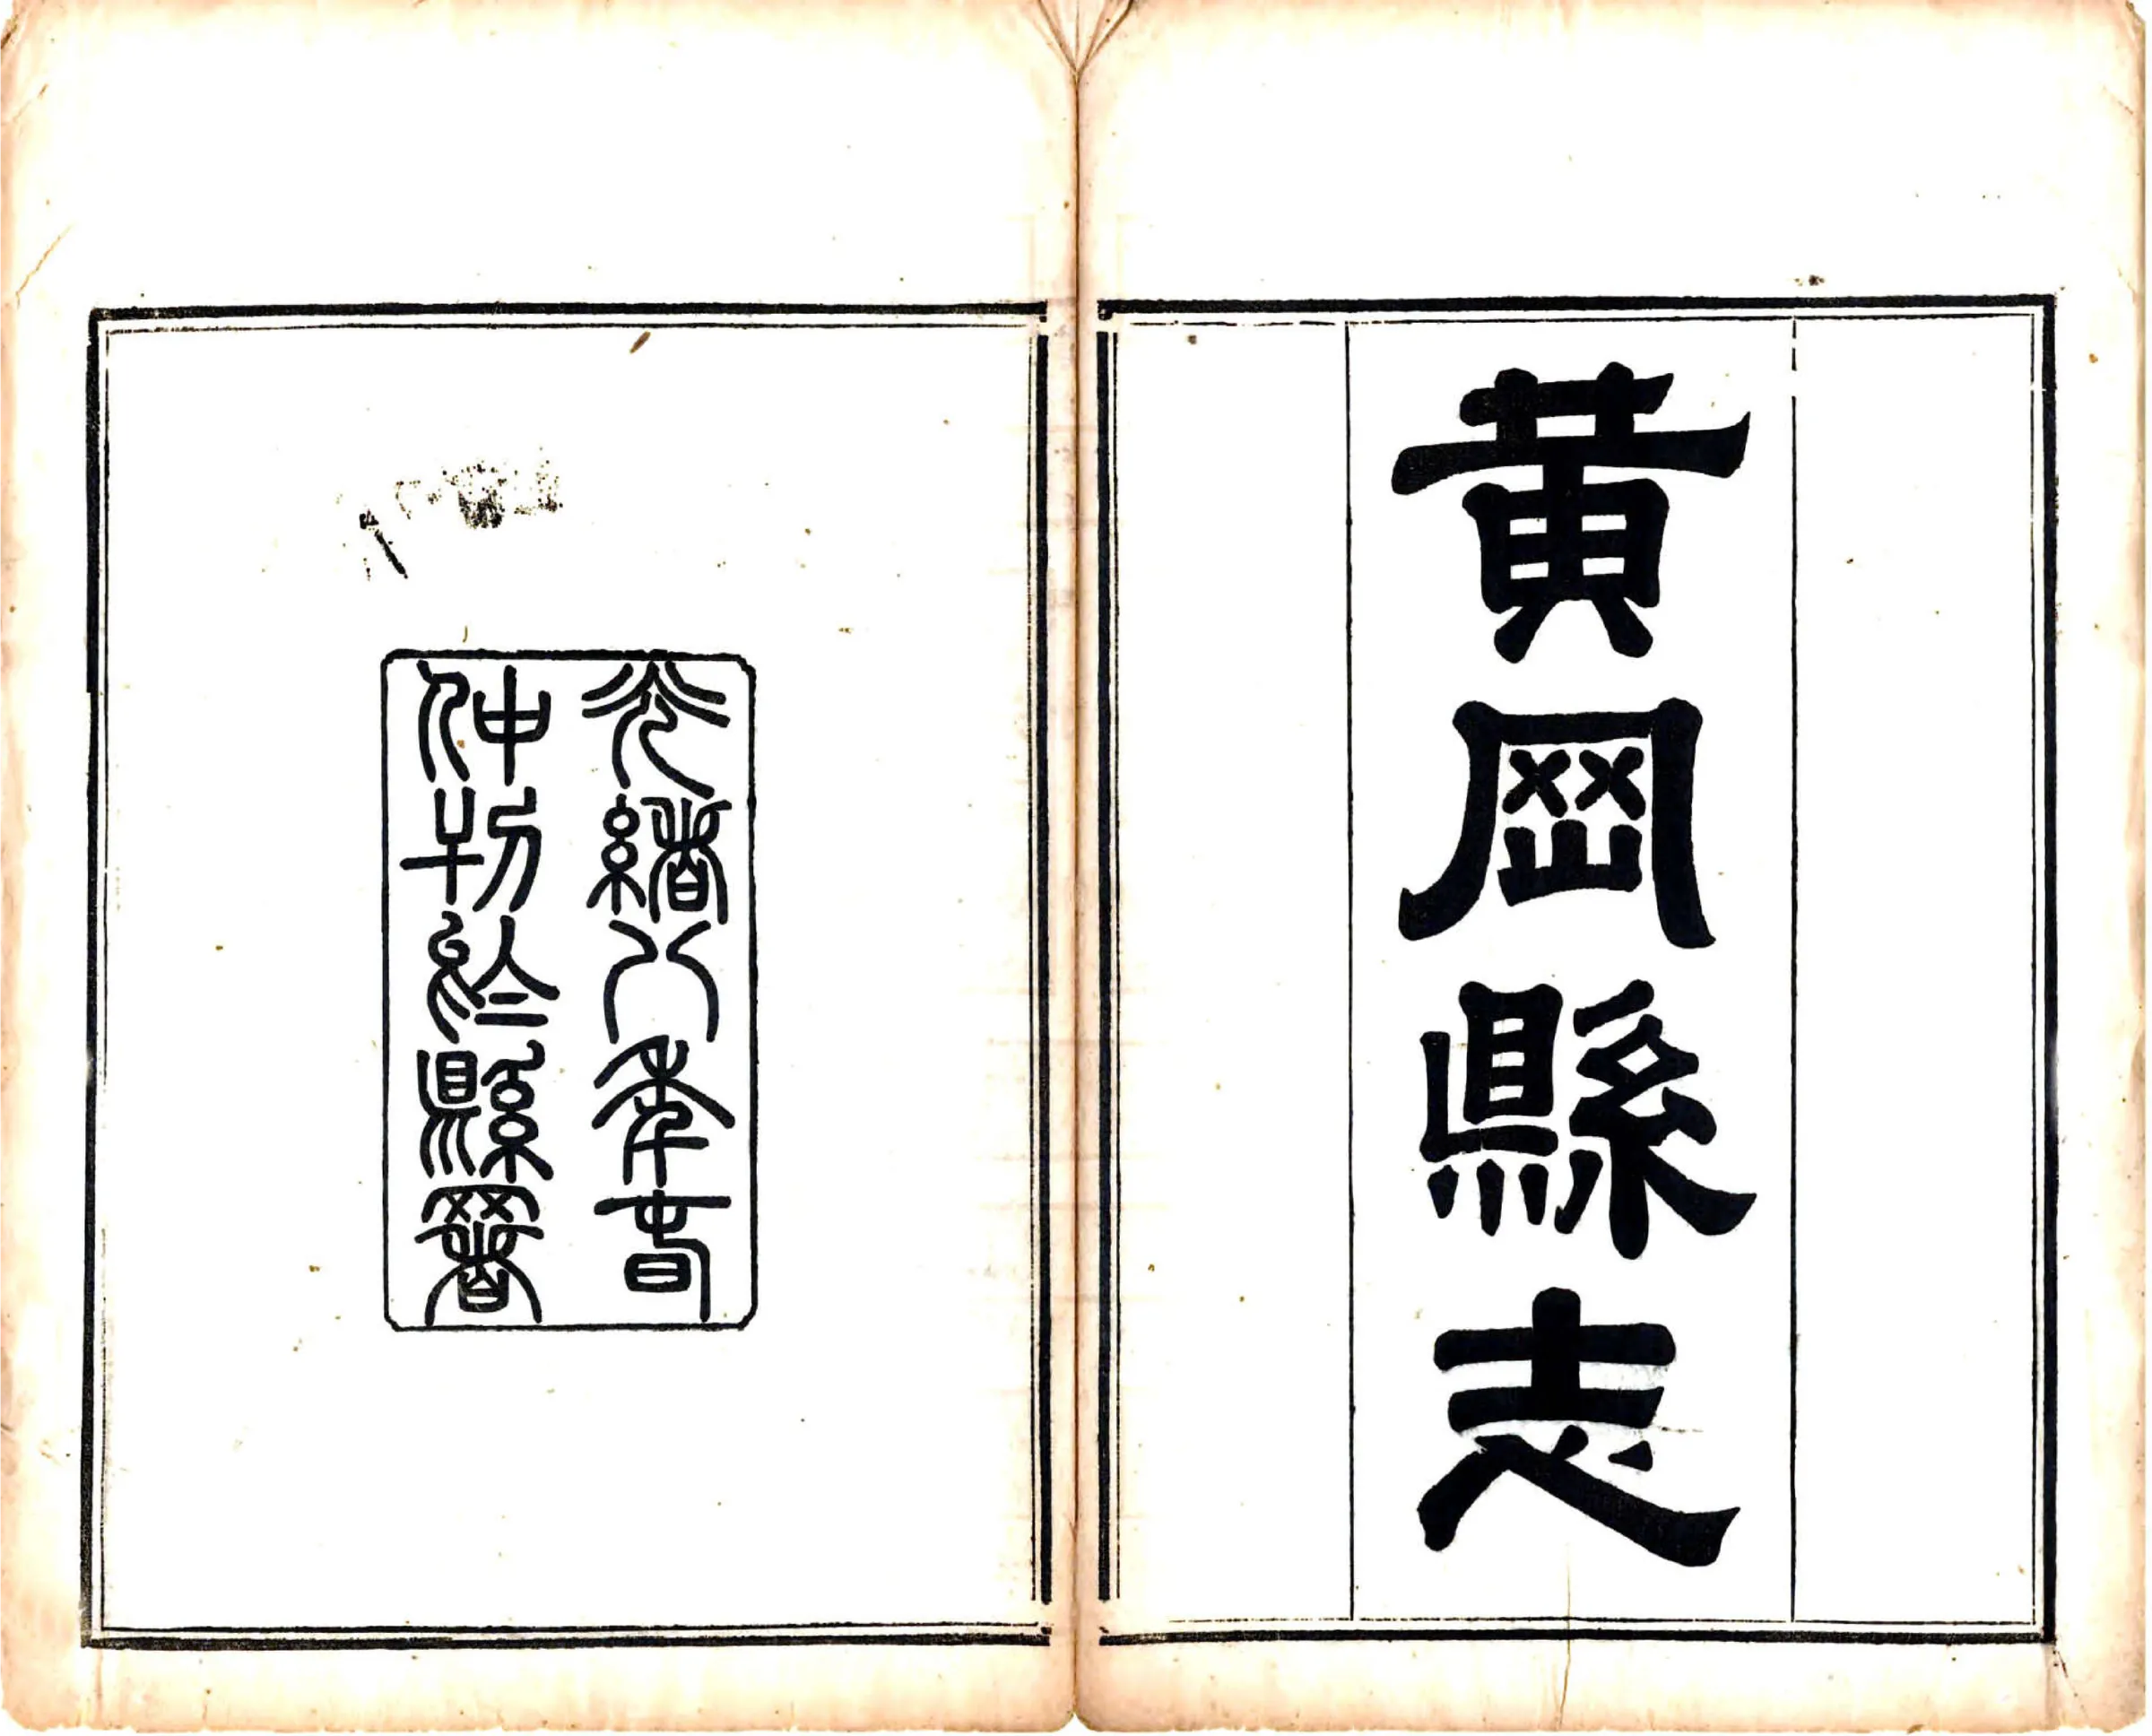 黃岡縣志
光緒八年春
仲刊於縣署